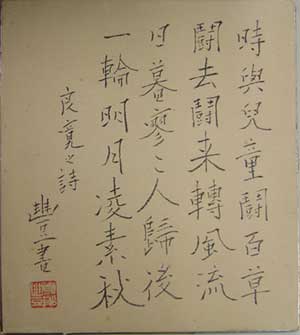 時與兒童鬪百草
鬪去鬪来轉風流
日暮寥〻人歸後
一輪明月凌素秋
良寛之詩
豊書